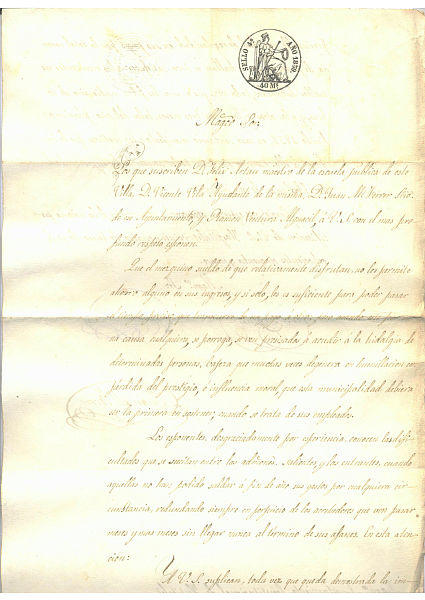 SELLO 4º AÑO 1870
40 Ms
Magco Sor
Los que suscriben D. Felix Artau maestro de la escuela pública de esta
Villa, D. Vicente Vela Ayudante de la misma, D. Juan M. Ferrer Srio
de su Ayuntamiento, y Ramon Ventura Alguacil, á V. S. con el mas pro
fundo respeto esponen:
Que el mezquino sueldo de que relativamente disfrutan no les permite
ahorro alguno en sus ingresos, y si solo, les es suficiente para poder pasar
el tiempo
na causa cualquiera, se proroga, se ven precisados á acudir á la hidalguia de
determinadas personas, bajeza que muchas veces degenera en humillacion con
pérdida del prestigio, é influencia moral, que esta municipalidad debiera
ser la primera en sostener, cuando se trata de sus empleados.
Los esponentes, desgraciadamente por esperiencia, conocen las difi
cultades que se suscitan entre los aditivos, salientes, y los entrantes, cuando
aquellos no han podido saldar á fin de año sus gastos por cualquiera cir
cunstancia, redundando siempre en perjuicio de los acreedores que ven pasar
meses y mas meses sin llegar nunca al termino de sus afanes. En esta aten
cion:
A V. S. suplican, toda vez que queda demostrada la in-